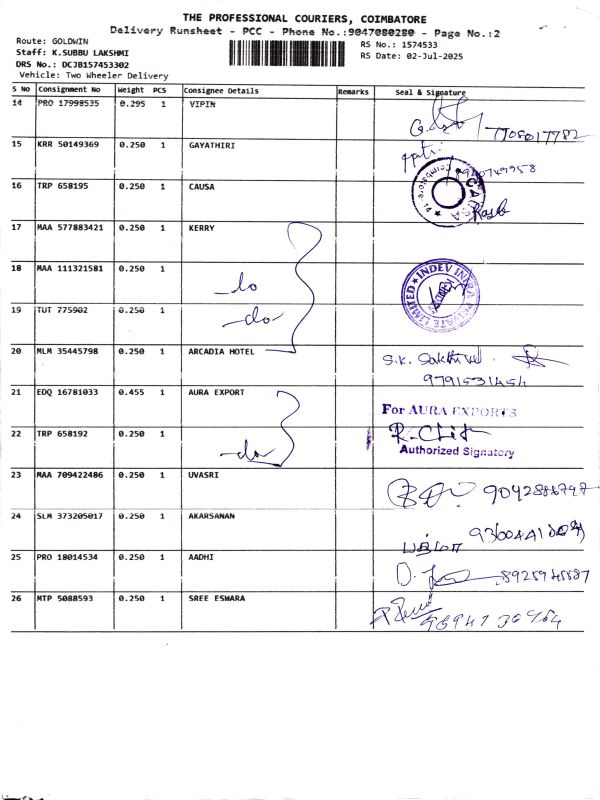 THE PROFESSIONAL COURIERS, COIMBATORE
Delivery Runsheet - PCC - Phone No.:9047080280 - Page No.:2
Route: GOLDWIN
Staff: K.SUBBU LAKSHMI
DRS No.: DCJB157453302
Vehicle: Two Wheeler Delivery
RS No.: 1574533
RS Date: 02-Jul-2025
S No Consignment No Weight PCS Consignee Details Remarks Seal & Signature
14 PRO 17998535 0.295 1 VIPIN
15 KRR 50149369 0.250 1 GAYATHIRI
16 TRP 658195 0.250 1 CAUSA
17 MAA 577883421 0.250 1 KERRY
18 MAA 111321581 0.250 1 -do
INDEV INFRA PRIVATE LIMITED
19 TUT 775902 0.250 1 -do-
20 MLM 35445798 0.250 1 ARCADIA HOTEL S.K. Sakthivel
9791531454
21 EDQ 16781033 0.455 1 AURA EXPORT For AURA EXPORTS
22 TRP 658192 0.250 1 -do-
Authorized Signatory
23 MAA 709422486 0.250 1 UVASRI
24 SLM 373205017 0.250 1 AKARSANAN
25 PRO 18014534 0.250 1 AADHI
26 MTP 5088593 0.250 1 SREE ESWARA